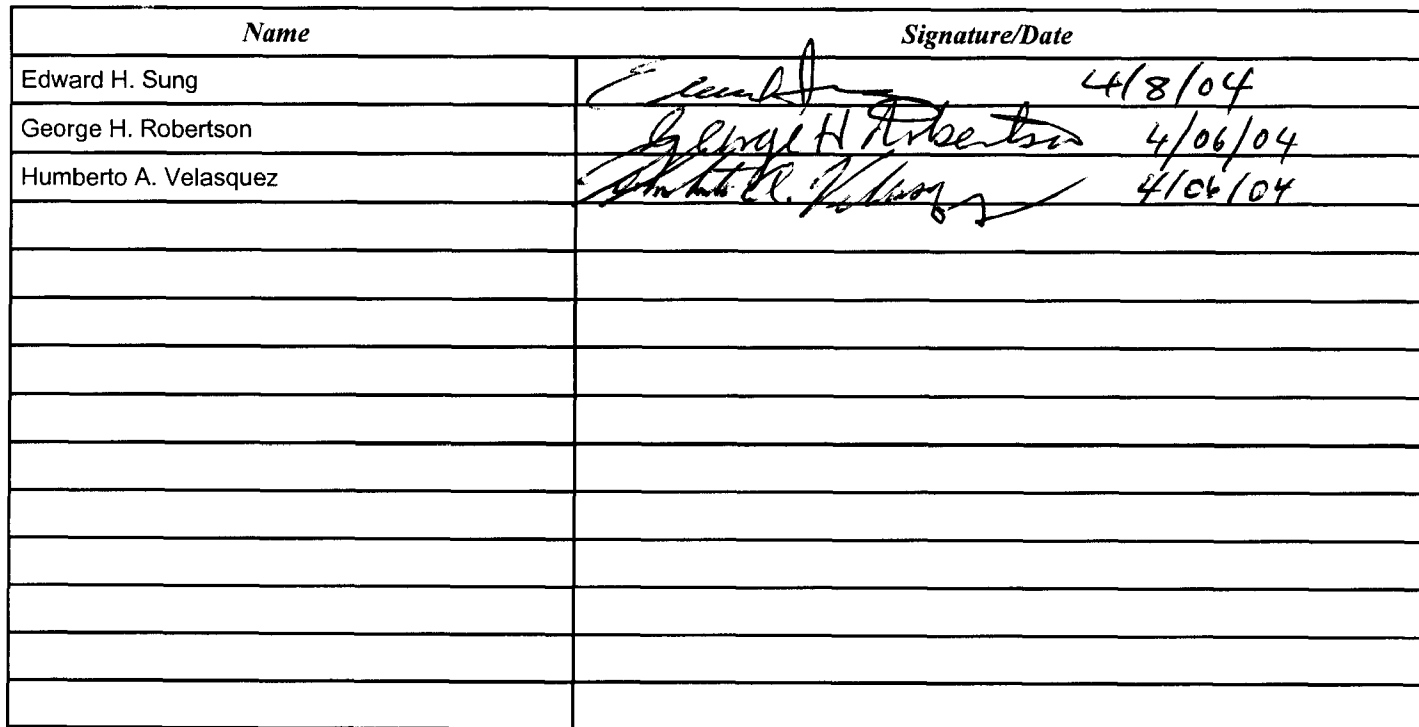 Name Signature/Date
Edward H. Sung 4/8/04
George H. Robertson George H Robertson 4/06/04
Humberto A. Velasquez Humberto A. Velasq 4/06/04